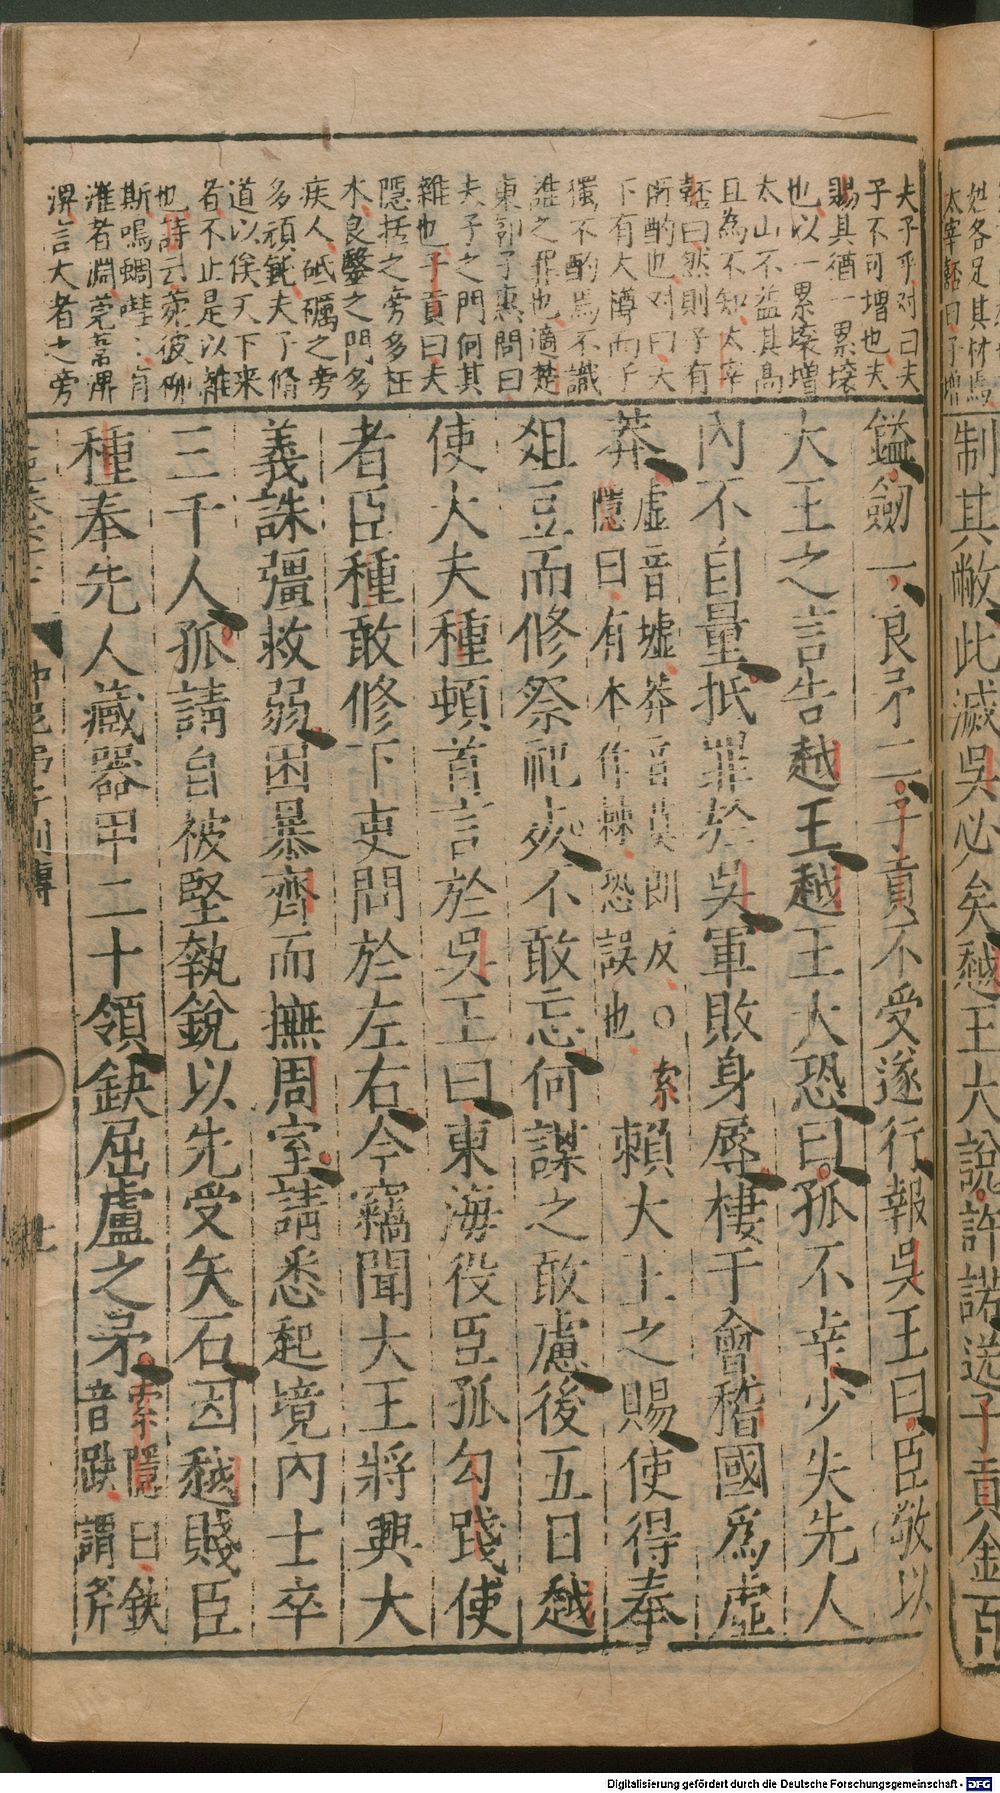 姓各足其材焉
太宰嚭曰子增
制其敝此滅吳必矣越王大說許諾送子貢金百
夫子乎对曰夫
子不可增也夫
賜其猶一累壤
也以一累壤增
太山不益其高
且為不知太宰
嚭曰然則子有
所酌也对曰天
下有大樽而子
獨不酌焉不識
誰之罪也適楚
東郭子惠問曰
夫子之門何其
雜也子貢曰夫
隱括之旁多枉
木良醫之門多
疾人砥礪之旁
多頑鈍夫子脩
道以俟天下來
者不止是以雜
也詩云菀彼柳
斯鳴蜩嘒〻有
漼者淵莞葦淠
淠言大者之旁
鎰劒一良矛二子貢不受遂行報吳王曰臣敬以
大王之言告越王越王大恐曰孤不幸少失先人
內不自量抵罪於吳軍敗身辱棲于會稽國爲虛
莽
虛音墟莽音莫朗反○索
隱曰有本作棘恐誤也
賴大王之賜使得奉
俎豆而修祭祀死不敢忘何謀之敢慮後五日越
使大夫種頓首言於吳王曰東海役臣孤勾踐使
者臣種敢修下吏問於左右今竊聞大王將興大
義誅彊救弱困暴齊而撫周室請悉起境內士卒
三千人孤請自被堅執銳以先受矢石因越賤臣
種奉先人藏器甲二十領鈌屈盧之矛
索隱曰鈌
音趹謂斧
仲尼弟子列傳